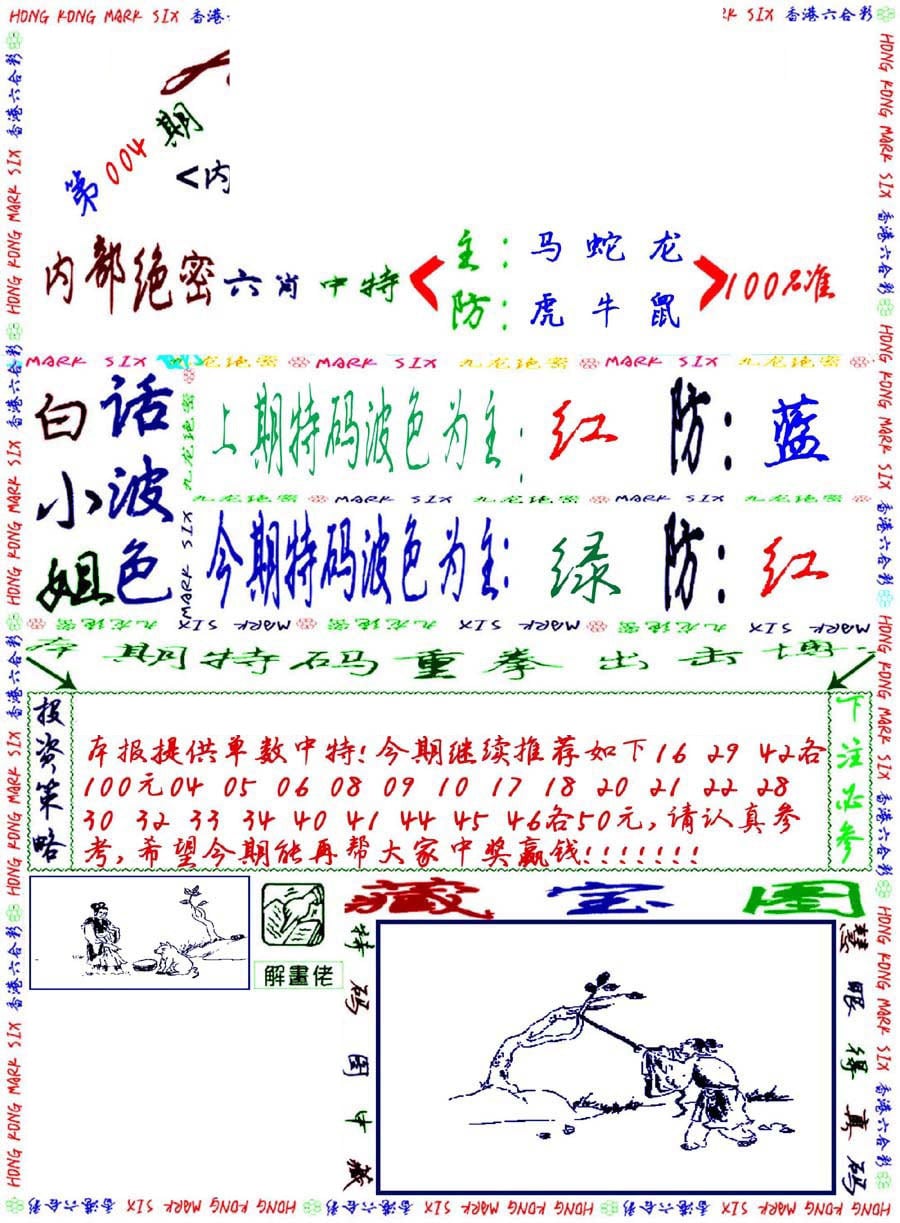 HONG KONG MARK SIX 香港
RK SIX 香港六合彩
第004期
<内
内部绝密六肖中特
主：马 蛇 龙
防：虎 牛 鼠
100%准
MARK SIX 九龙绝密 MARK SIX 九龙绝密 MARK SIX 九龙绝密
白话
小波
姐色
上期特码波色为主：红 防：蓝
九龙绝密 MARK SIX 九龙绝密 MARK SIX 九龙绝密
今期特码波色为主：绿 防：红
MARK SIX 九龙绝密 MARK SIX 九龙绝密 MARK SIX 九龙绝密
期特码重拳出击
投资策略
本报提供单数中特!今期继续推荐如下16 29 42各
100元04 05 06 08 09 10 17 18 20 21 22 28
30 32 33 34 40 41 44 45 46各50元,请认真参
考,希望今期能再帮大家中奖赢钱!!!!!!!
下注必参
解畫佬
藏宝图
特码图中藏
慧眼得真码
HONG KONG MARK SIX 香港六合彩 HONG KONG MARK SIX 香港六合彩 HONG KONG MARK SIX 香港六合彩